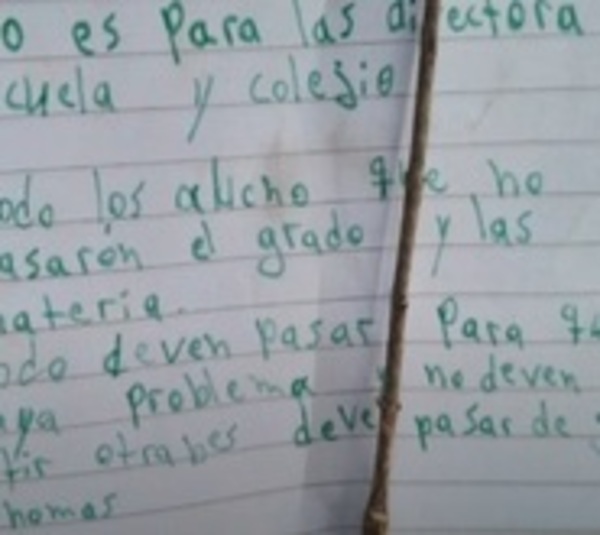 o es Para las directora
cuela y colegio
odo los alucho que no
asaron el grado y las
ateria.
odo deven pasar Para
aya problema no deven
tir otrabes deve pasar de
homas